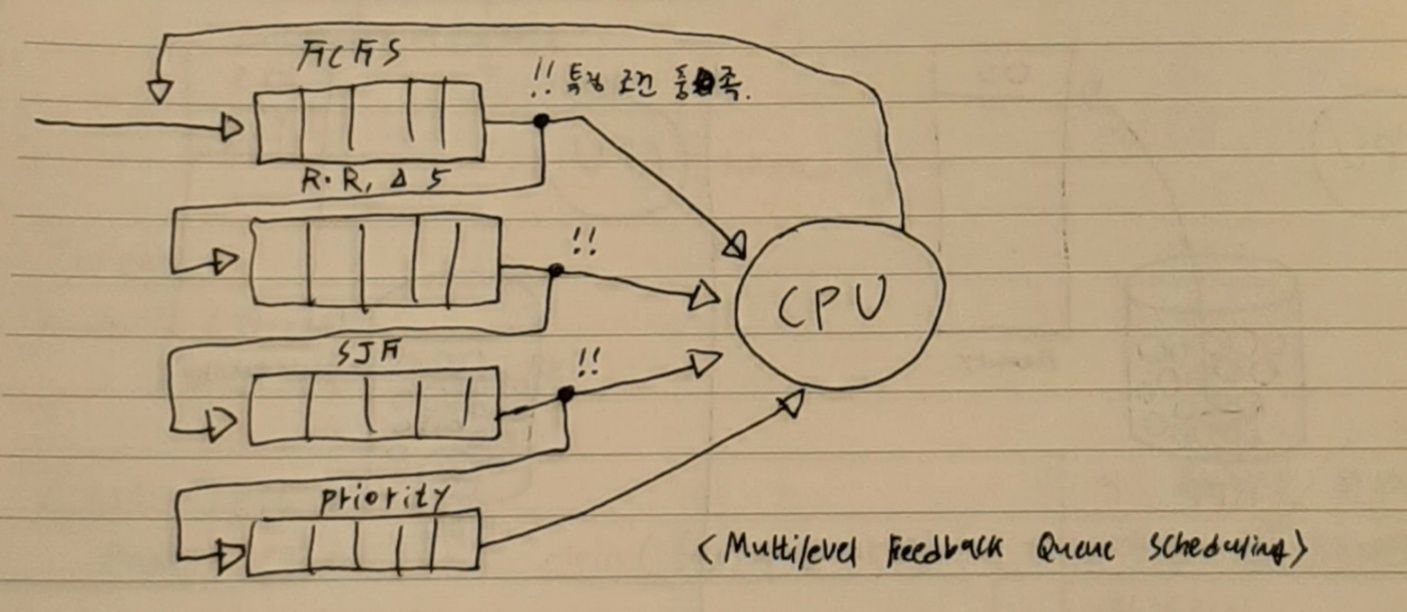 FCFS
!! 특정 조건 충족.
R.R, Δ 5
!!
SJF
!!
Priority
CPU
<Multilevel Feedback Queue Scheduling>